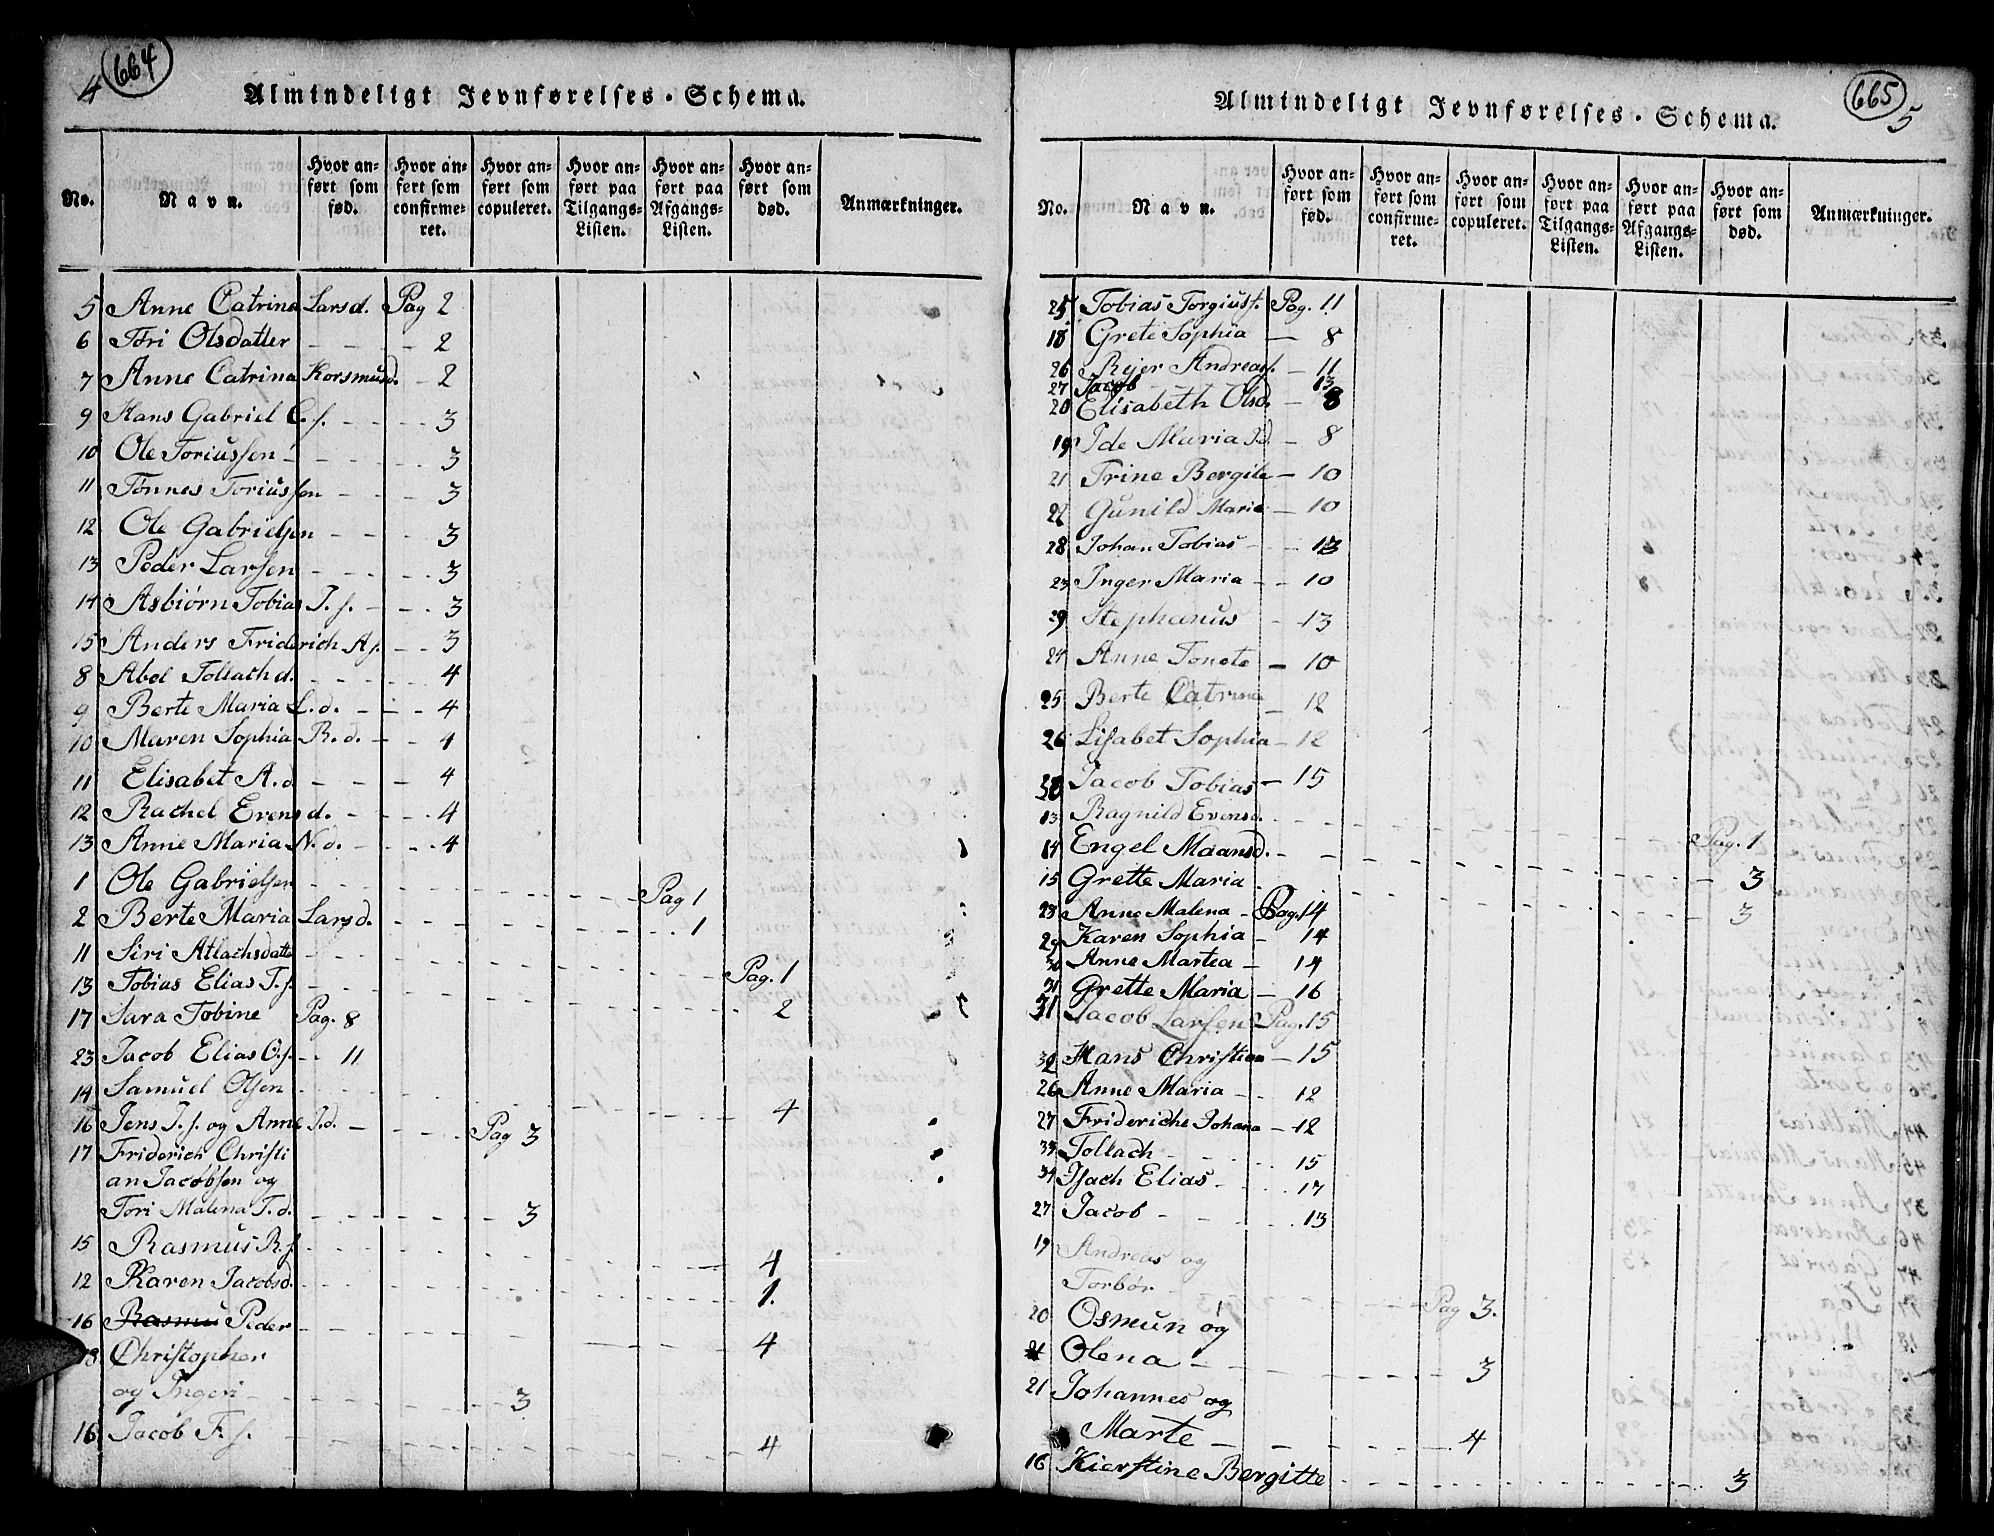 4 664
Almindeligt Jevnførelses-Schema.
No. Navn. Hvor anført som fød. Hvor anført som confirmeret. Hvor anført som copuleret. Hvor anført paa Tilgangs-Listen. Hvor anført paa Afgangs-Listen. Hvor anført som død. Anmærkninger.
5 Anne Catrina Larsd. Pag 2
6 Töri Olsdatter - - - - 2
7 Anne Catrina Korsmusd. - 2
9 Hans Gabriel C.s. - - - - 3
10 Ole Toriussen - - - - 3
11 Tönnes Toriussen - - - 3
12 Ole Gabrielsen - - - 3
13 Peder Larsen - - - - 3
14 Asbiørn Tobias J.s. - - - 3
15 Anders Friderich A.s. - - 3
8 Abel Tollach d. - - - - 4
9 Berte Maria L.d. - - - 4
10 Maren Sophia R.d. - - 4
11 Elisabet A.d - - - 4
12 Rachel Evens d. - - - 4
13 Anne Maria N.d. - - - 4
1 Ole Gabrielsen - - - - Pag 1
2 Berte Maria Larsd. - - - - 1
11 Siri Atlachsdatte - - - - Pag. 1
13 Tobias Elias T.s. - - - - 2
17 Sara Tobine Pag. 8
23 Jacob Elias O.s. - - 11
14 Samuel Olsen - - - - 4
16 Jens J.s. og Anne J.d. - - - Pag 3
17 Friderich Christi
an Jacobsen og
Töri Malena T.d. - - - - 3
15 Rasmus R.s. - - - - 4
12 Karen Jacobsd. - - - - 1.
16 Rasmus Peder - - - - 4
18. Christopher
og Ingeri - - - - 3
16 Jacob F.s. - - - - 4
665 5
Almindeligt Jevnførelses-Schema.
No. Navn. Hvor anført som fød. Hvor anført som confirmeret. Hvor anført som copuleret. Hvor anført paa Tilgangs-Listen. Hvor anført paa Afgangs-Listen. Hvor anført som død. Anmærkninger.
25 Tobias Torgius s. Pag. 11
18 Grete Sophia - 8
26 Rejer Andreas s. - 11
27 Jacob - 13
20 Elisabeth Olsd. - 8
19 Ide Maria J.d. - 8
21 Trine Bergite - 10
22 Gunild Marie - 10
28 Johan Tobias - - 13
23 Inger Maria - - 10
29 Stephanus - 13
24 Anne Tonete - 10
25 Berte Catrine - 12
26 Lisabet Sophia - 12
30 Jacob Tobias - 15
13 Ragnild Evensd. - - - - Pag. 1
14 Engel Maansd. - - - - 3
15 Grette Maria - - - - 3
28 Anne Malena - Pag. 14
29 Karen Sophia - 14
30 Anne Martea - 14
31 Grette Maria - 16
31 Jacob Larsen Pag. 15
32 Hans Christian - 15
26 Anne Maria - - 12
27 Frideriche Johana - 12
33 Tollach - - - 15
34 Isach Elias - - - 17
27 Jacob - - - 13
19 Andreas og
Torbør - - - - Pag 3.
20 Osmun og
21 Olena - - - - 3
21 Johannes og
Marte - - - - 4
16 Kierstine Bergitte - - - - 3